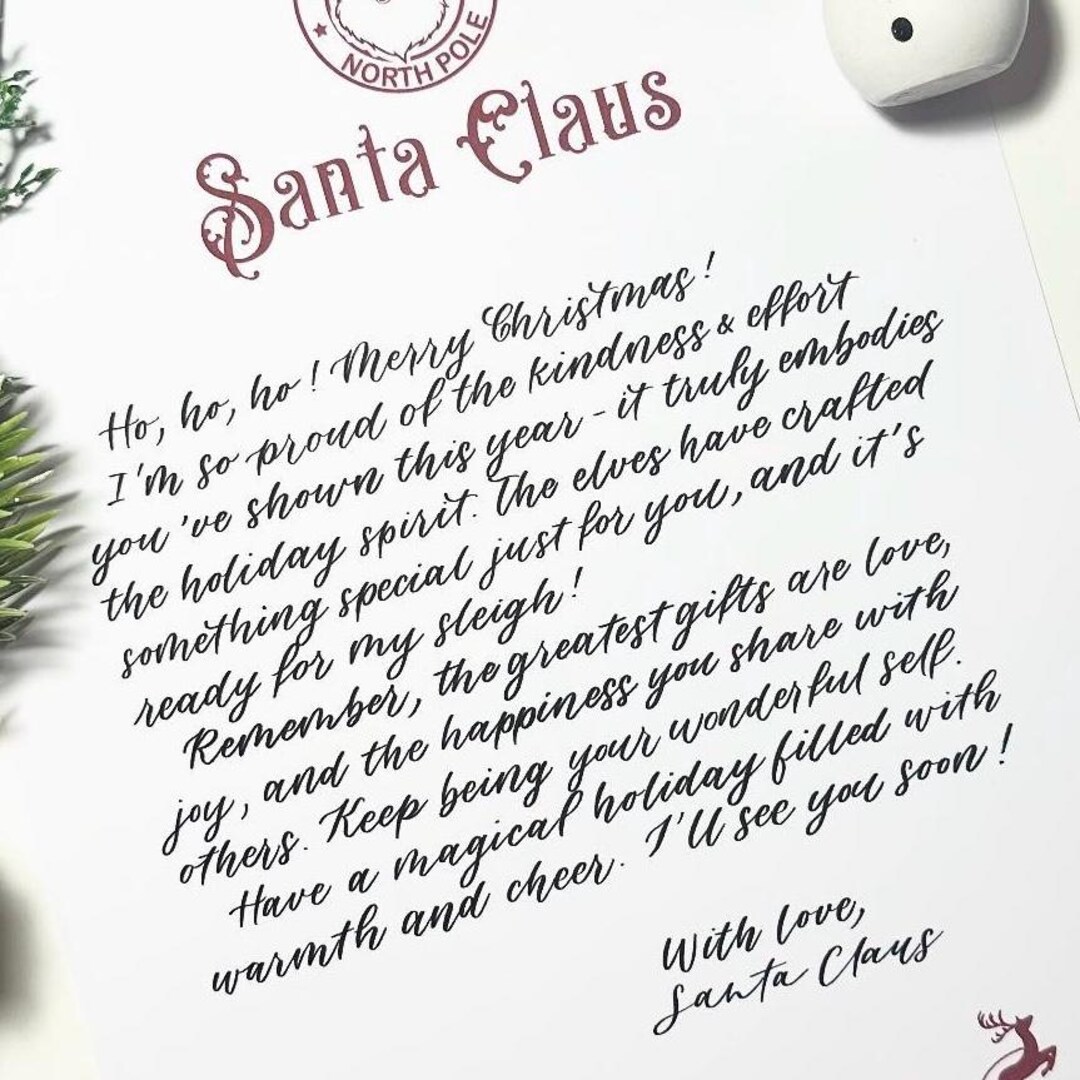 NORTH POLE
Santa Claus
Ho, ho, ho! Merry Christmas!
I'm so proud of the kindness & effort
you've shown this year - it truly embodies
the holiday spirit. The elves have crafted
something special just for you, and it's
ready for my sleigh!
Remember, the greatest gifts are love,
joy, and the happiness you share with
others. Keep being your wonderful self.
Have a magical holiday filled with
warmth and cheer. I'll see you soon!
With love,
Santa Claus